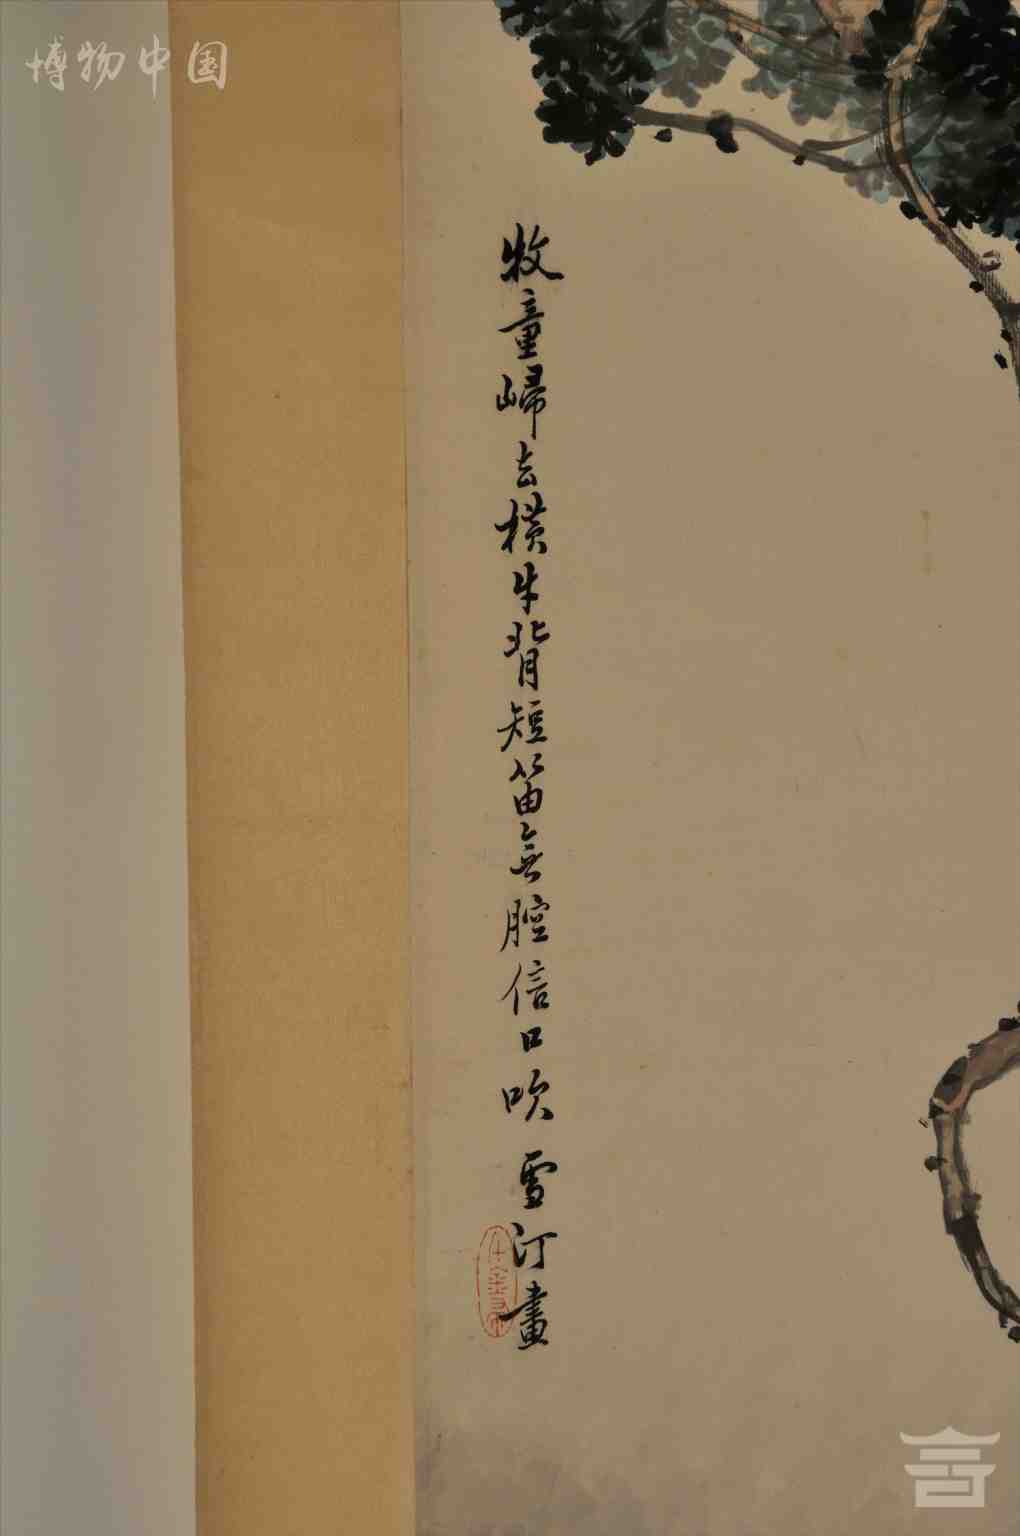 博物中国
牧童歸去橫牛背短笛無腔信口吹 雪汀畫